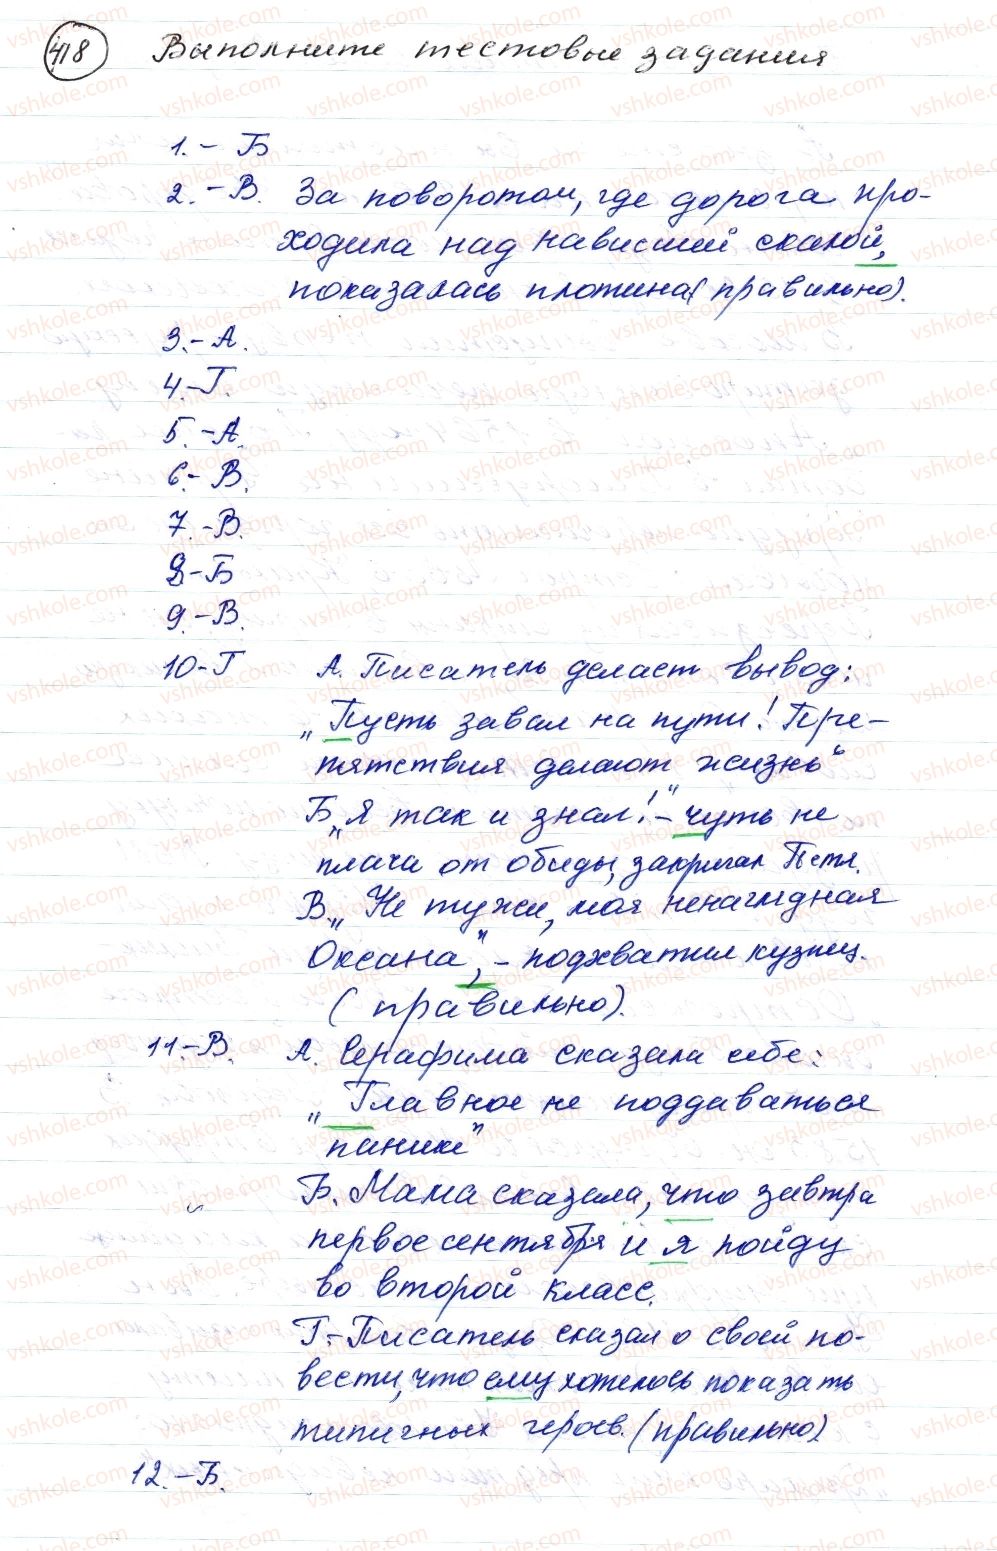 418 Выполните тестовые задания
1.- Б
2.-В. За поворотом, где дорога про-
ходила над нависшей скалой,
показалась плотина (правильно).
3.-А.
4.-Г.
5.-А.
6.-В.
7.-В.
8-Б
9.-В.
10-Г А. Писатель делает вывод:
„Пусть завал на пути! Пре-
пятствия делают жизнь“
Б „Я так и знал!“ - чуть не
плача от обиды, закричал Петя.
В „Не тужи, моя ненаглядная
Оксана“, - подхватил кузнец.
(правильно).
11.-В. А. Серафима сказала себе:
„Главное не поддаваться
панике“
Б. Мама сказала, что завтра
первое сентября и я пойду
во второй класс.
Г.-Писатель сказал о своей по-
вести, что ему хотелось показать
типичных героев. (правильно)
12.-Б.